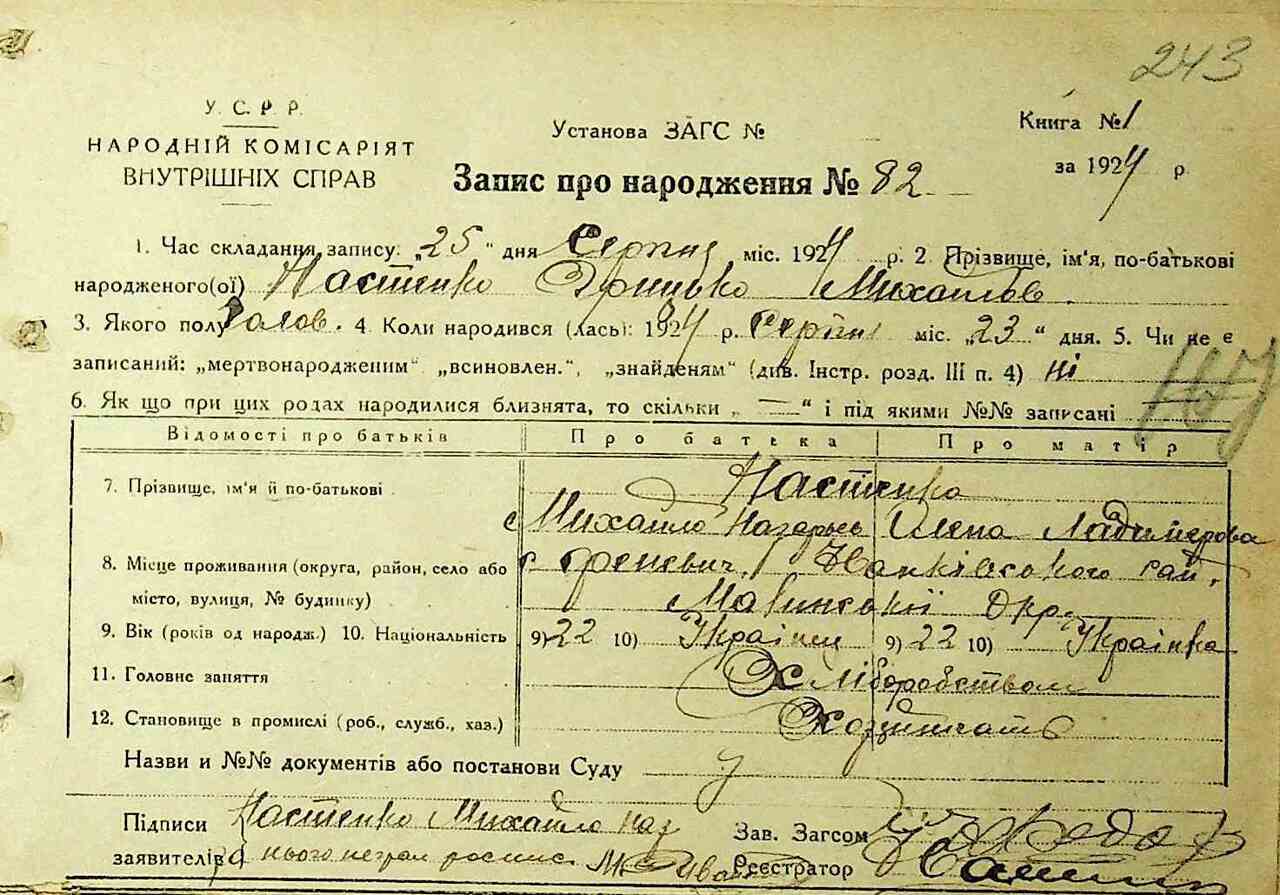 243
У. С. Р. Р.
НАРОДНІЙ КОМІСАРІЯТ
ВНУТРІШНІХ СПРАВ
Установа ЗАГС №
Книга № 1
за 1924 р.
Запис про народження № 82
1. Час складання запису: „25" дня Серпня міс. 1924 р. 2. Прізвище, ім'я, по-батькові
народженого(ої) Настенко Грицько Михайлов.
3. Якого полу Чолов. 4. Коли народився (лась): 1924 р. Серпня міс. „23" дня. 5. Чи не є
записаний: „мертвонародженим" „всиновлен.", „знайденям" (див. Інстр. розд. III п. 4) ні
6. Як що при цих родах народилися близнята, то скільки „ — " і під якими №№ записані
Відомості про батьків Про батька Про матір
7. Прізвище, ім'я й по-батькові Настенко
Михайло Назарьев Олена Ладимерова
8. Місце проживання (округа, район, село або с. Іванківского рай.
місто, вулиця, № будинку) Малинської Окр.
9. Вік (років од народж.) 10. Національність 9) 22 10) Українец 9) 22 10) Українка
11. Головне заняття Хліборобством
12. Становище в промислі (роб., служб., хаз.)
Назви и №№ документів або постанови Суду
Підписи Настенко Михайло Наз
заявителів
Зав. Загсом
Реєстратор